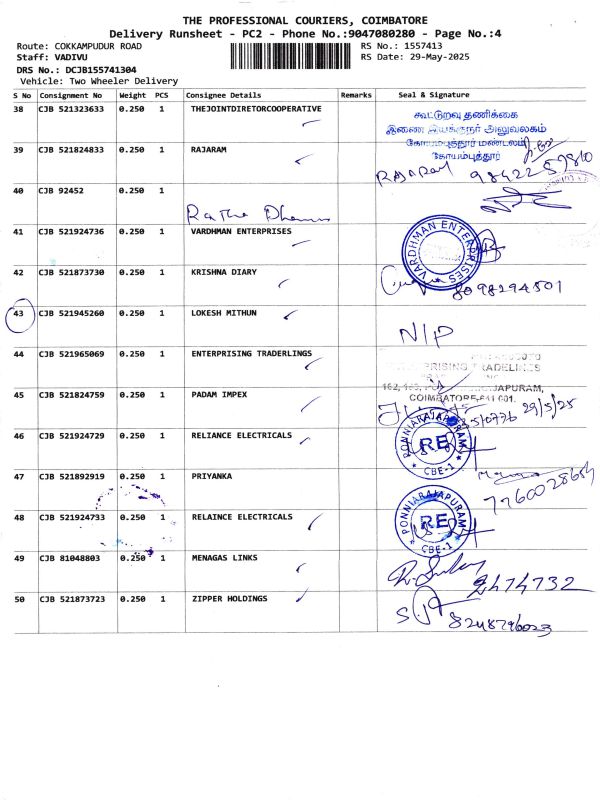 THE PROFESSIONAL COURIERS, COIMBATORE
Delivery Runsheet - PC2 - Phone No.:9047080280 - Page No.:4
Route: COKKAMPUDUR ROAD RS No.: 1557413
Staff: VADIVU RS Date: 29-May-2025
DRS No.: DCJB155741304
Vehicle: Two Wheeler Delivery
S No Consignment No Weight PCS Consignee Details Remarks Seal & Signature
38 CJB 521323633 0.250 1 THEJOINTDIRETORCOOPERATIVE
கூட்டுறவு தணிக்கை
இணை இயக்குநர் அலுவலகம்
கோயம்புத்தூர் மண்டலம்
கோயம்புத்தூர்
39 CJB 521824833 0.250 1 RAJARAM
RAJARAM
40 CJB 92452 0.250 1
41 CJB 521924736 0.250 1 VARDHMAN ENTERPRISES
VARDHMAN ENTERPRISES
42 CJB 521873730 0.250 1 KRISHNA DIARY
8098294501
43 CJB 521945260 0.250 1 LOKESH MITHUN
N/P
44 CJB 521965069 0.250 1 ENTERPRISING TRADERLINGS
45 CJB 521824759 0.250 1 PADAM IMPEX
COIMBATORE-641 001.
29/5/25
46 CJB 521924729 0.250 1 RELIANCE ELECTRICALS
PONNIARAJAPURAM
RE
CBE-1
47 CJB 521892919 0.250 1 PRIYANKA
7760028684
48 CJB 521924793 0.250 1 RELAINCE ELECTRICALS
PONNIARAJAPURAM
RE
CBE-1
49 CJB 81048803 0.250 1 MENAGAS LINKS
2474732
50 CJB 521873723 0.250 1 ZIPPER HOLDINGS
8248796023